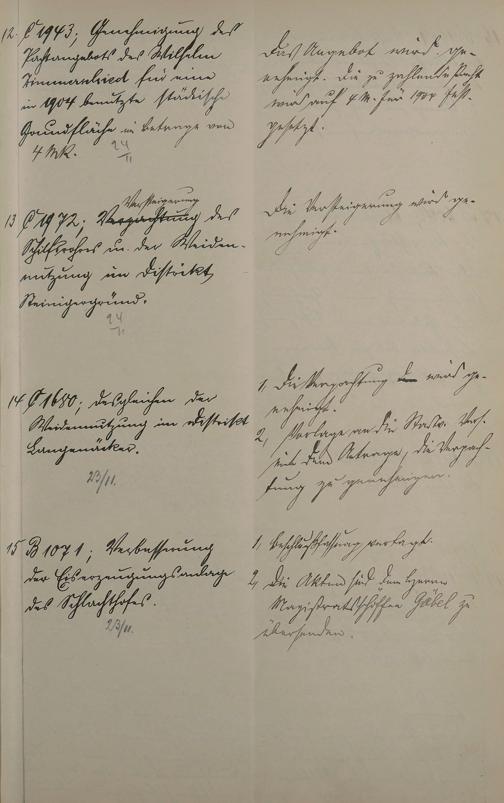 12. C 1943; Genehmigung des
Pachtangebots des Wilhelm
Zimmer für eine
in 1904 benutzte städtische
Grundfläche im Betrage von
4 Mk.
24
11
Das Angebot wird ge-
nehmigt. Die zu zahlende Pacht
wird auf 4 M. für 1904 fest-
gesetzt.
13 C 1972; Verpachtung des
Versteigerung
Schilfrohres u. der Weiden-
nutzung im Distrikt
Steinigergründ.
24
11
Die Versteigerung wird ge-
nehmigt.
14 C 1680; desgleichen der
Weidennutzung im Distrikt
Langenäcker.
23/11.
1, Die Verpachtung wird ge-
nehmigt.
2, Vorlage an die Stadtv. Vers.
mit dem Antrage, die Verpach-
tung zu genehmigen.
15 B 1071; Verbesserung
der Eiserzeugungsanlage
des Schlachthofes.
23/11.
1, Beschlußfassung vertagt.
2, Die Akten sind dem Herrn
Magistratsschöffen Göbel zu
übersenden.